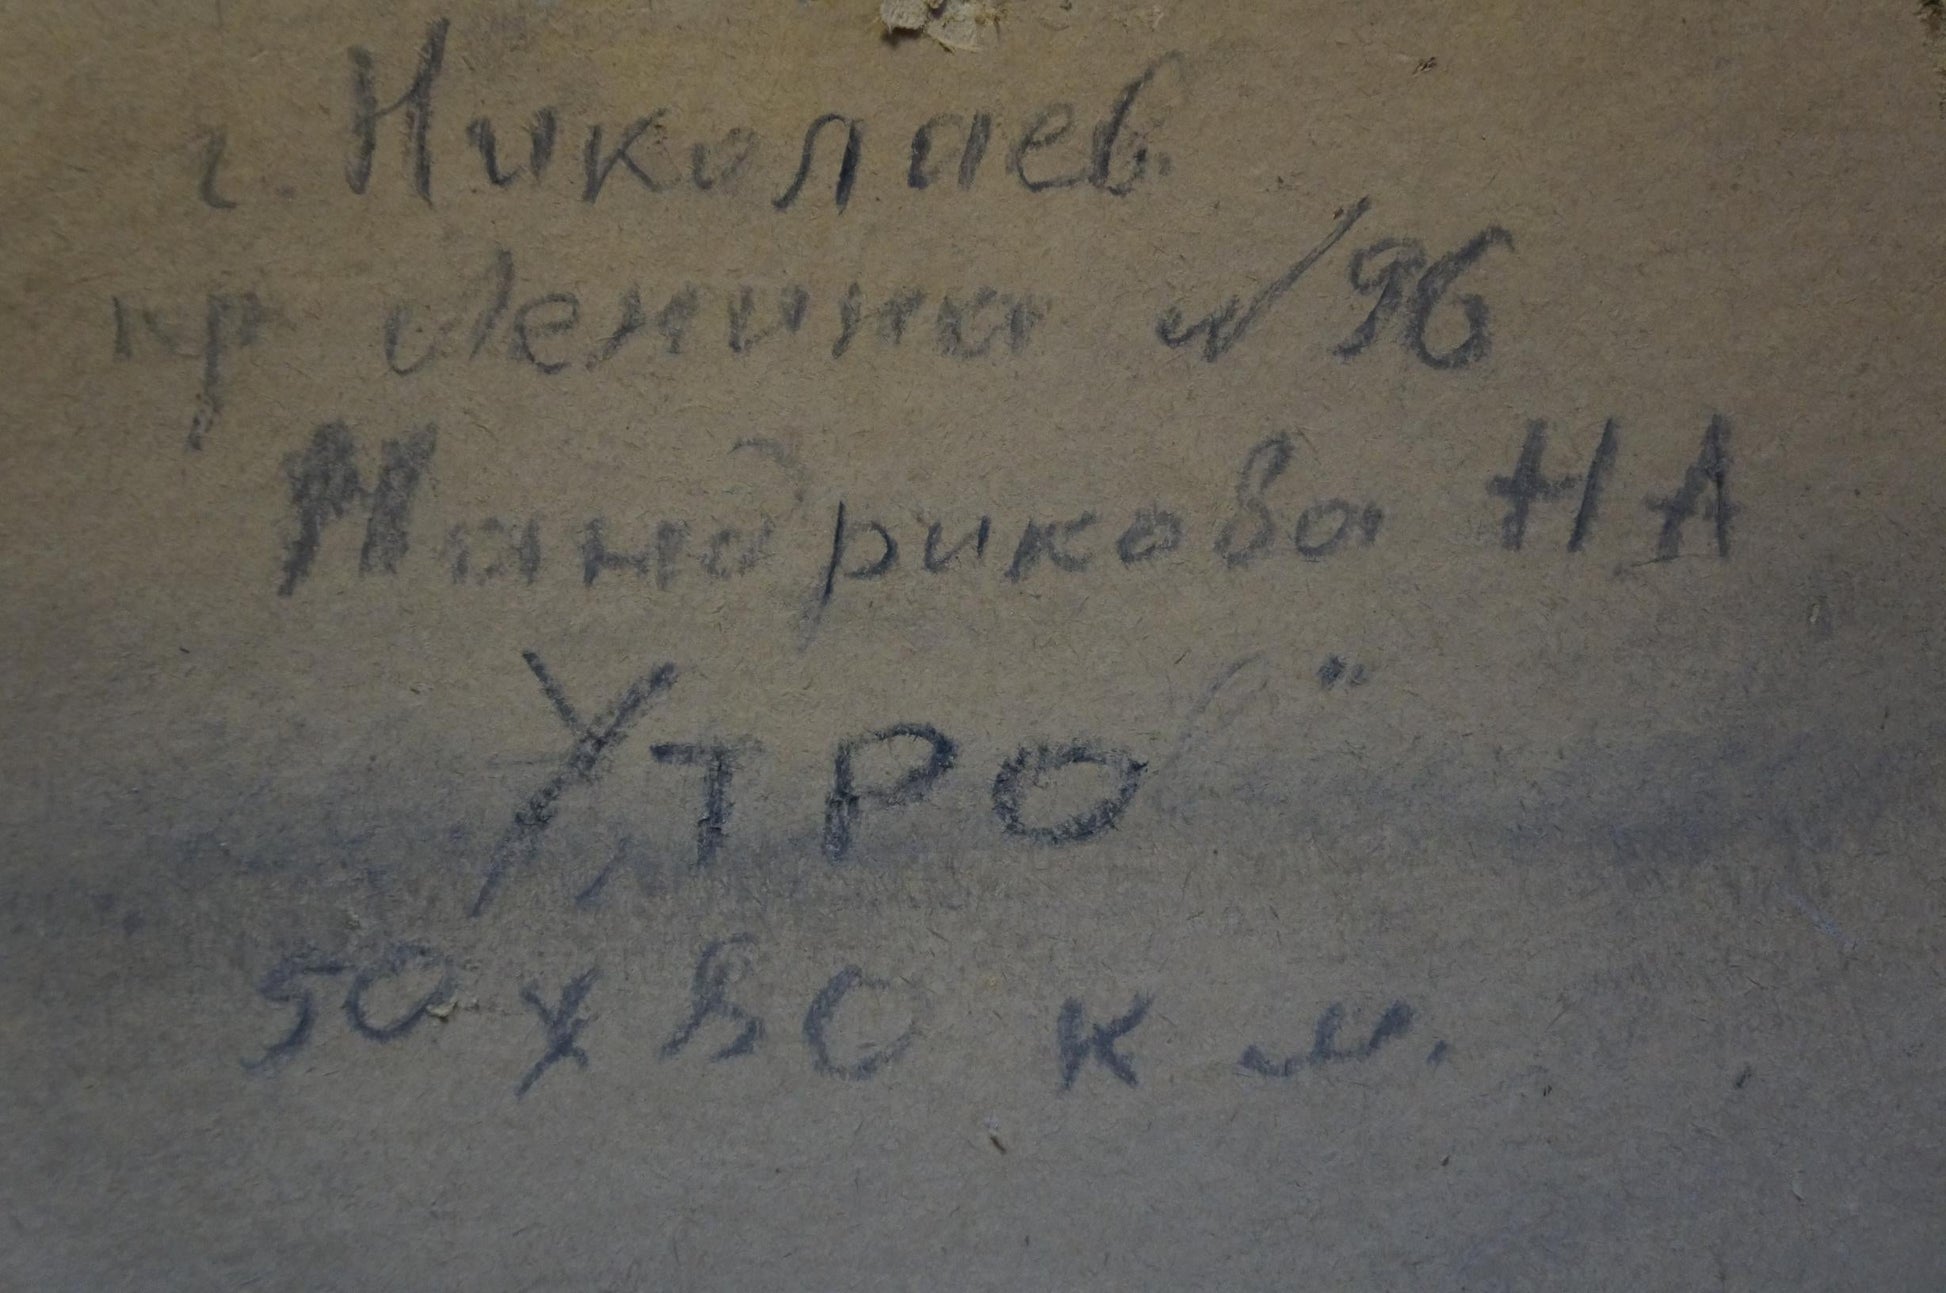 г. Николаев
пр Ленина № 96
Мандрикова Н А
Утро"
50 х 80 к м.